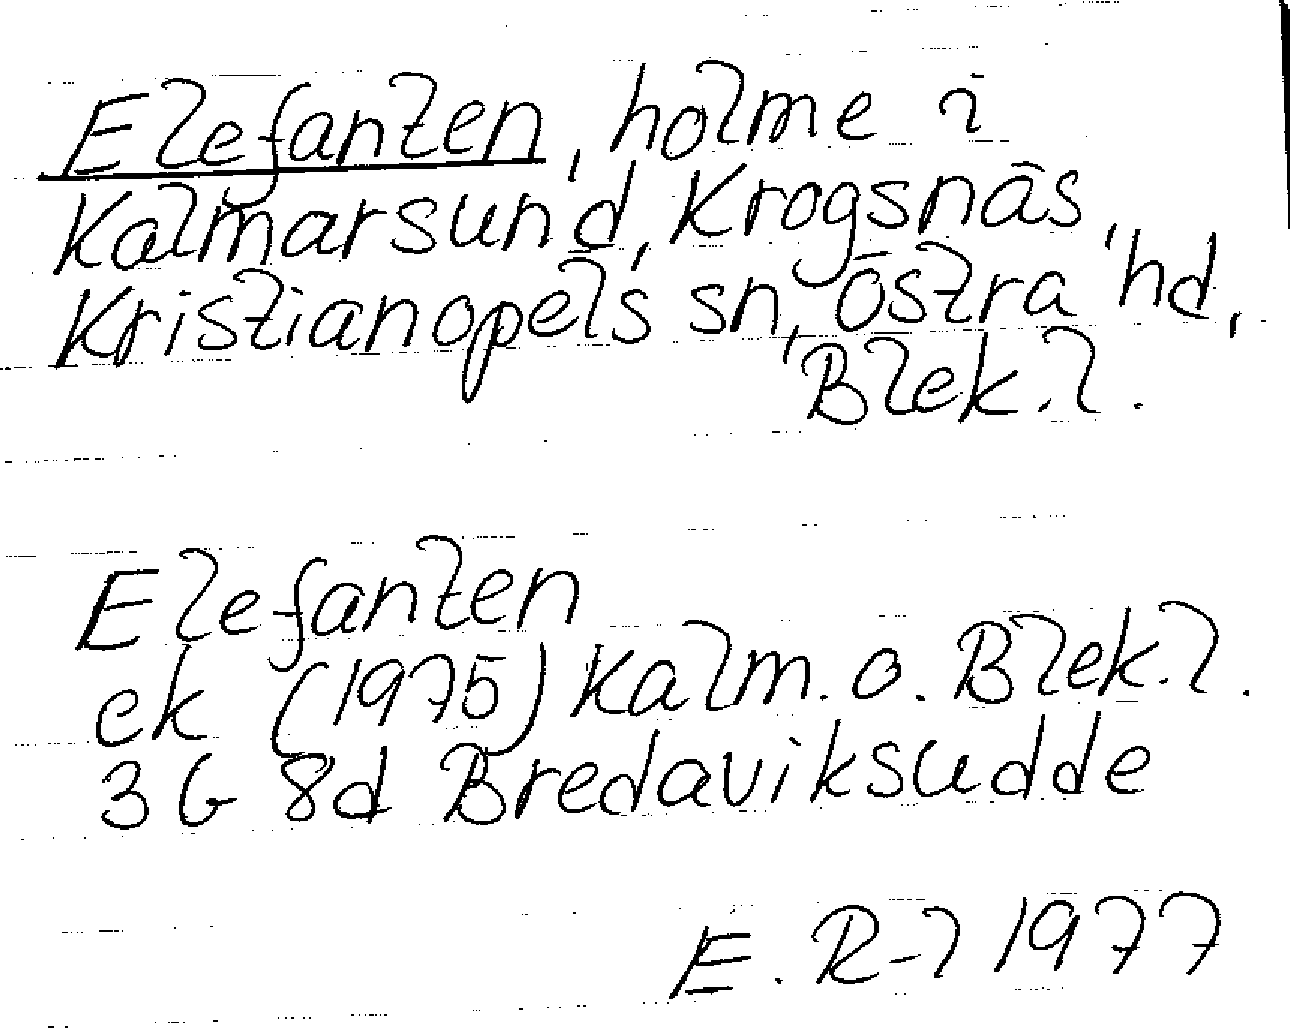 Elefanten, holme i
Kalmarsund, Krogsnäs,
Kristianopels sn, Östra hd,
Blek.l.
Elefanten
ek (1975) Kalm. o. Blek.l.
3G 8d Bredaviksudde
E. R-l 1977